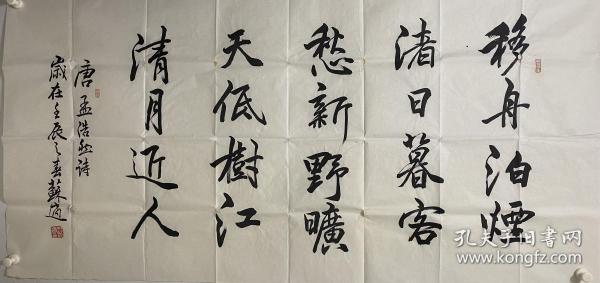 移舟泊煙
渚日暮客
愁新野曠
天低樹江
清月近人
唐孟浩然詩
歲在壬辰之春蘇適
孔夫子旧書网
www.kongfz.com